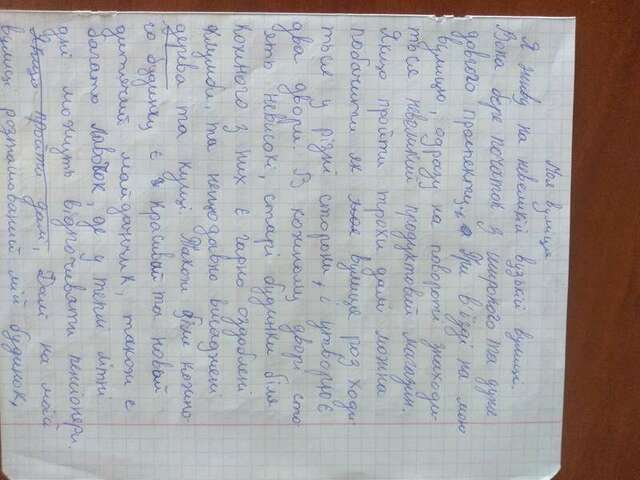 Моя вулиця
Я живу на невеликій вузькій вулиці.
Вона бере початок з широкого та дуже
довгого проспекту. При в'їзді на мою
вулицю, одразу на повороті знаходи-
ться невеликий продуктовий магазин.
Якщо пройти трохи далі можна
побачити як моя вулиця роз ходи
ться у різні сторони, і утворює
два двори. В кожному дворі сто
ять невисокі, старі будинки біля
кожного з них є гарно оздоблені
клумби, та нещодавно висаджені
дерева та кущі. Також біля кожно-
го будинку є красивий та новий
дитячий майданчик, також є
багато лавочок, де у теплі літні
дні можуть відпочивати пенсіонери.
Якщо пройти далі, Далі на моїй
вулиці розташований мій будинок,